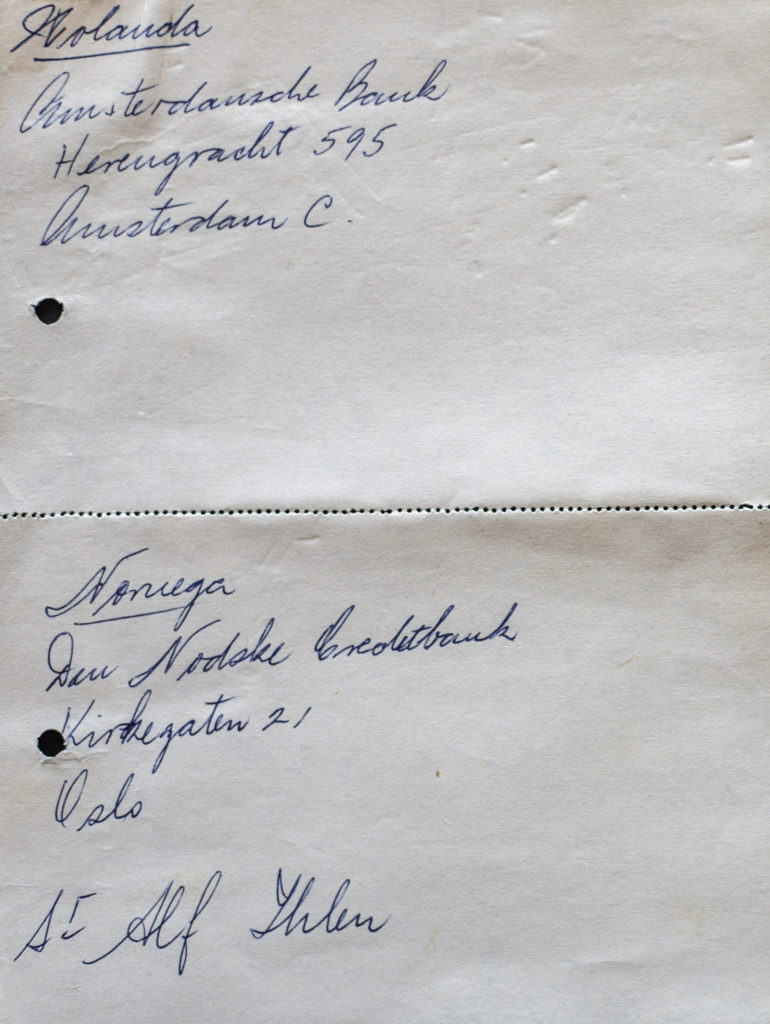 Holanda
Amsterdansche Bank
Herengracht 595
Amsterdam C.
Noruega
Den Nodske Credetbank
Kirkegaten 21
Oslo
Sr Alf Ihlen